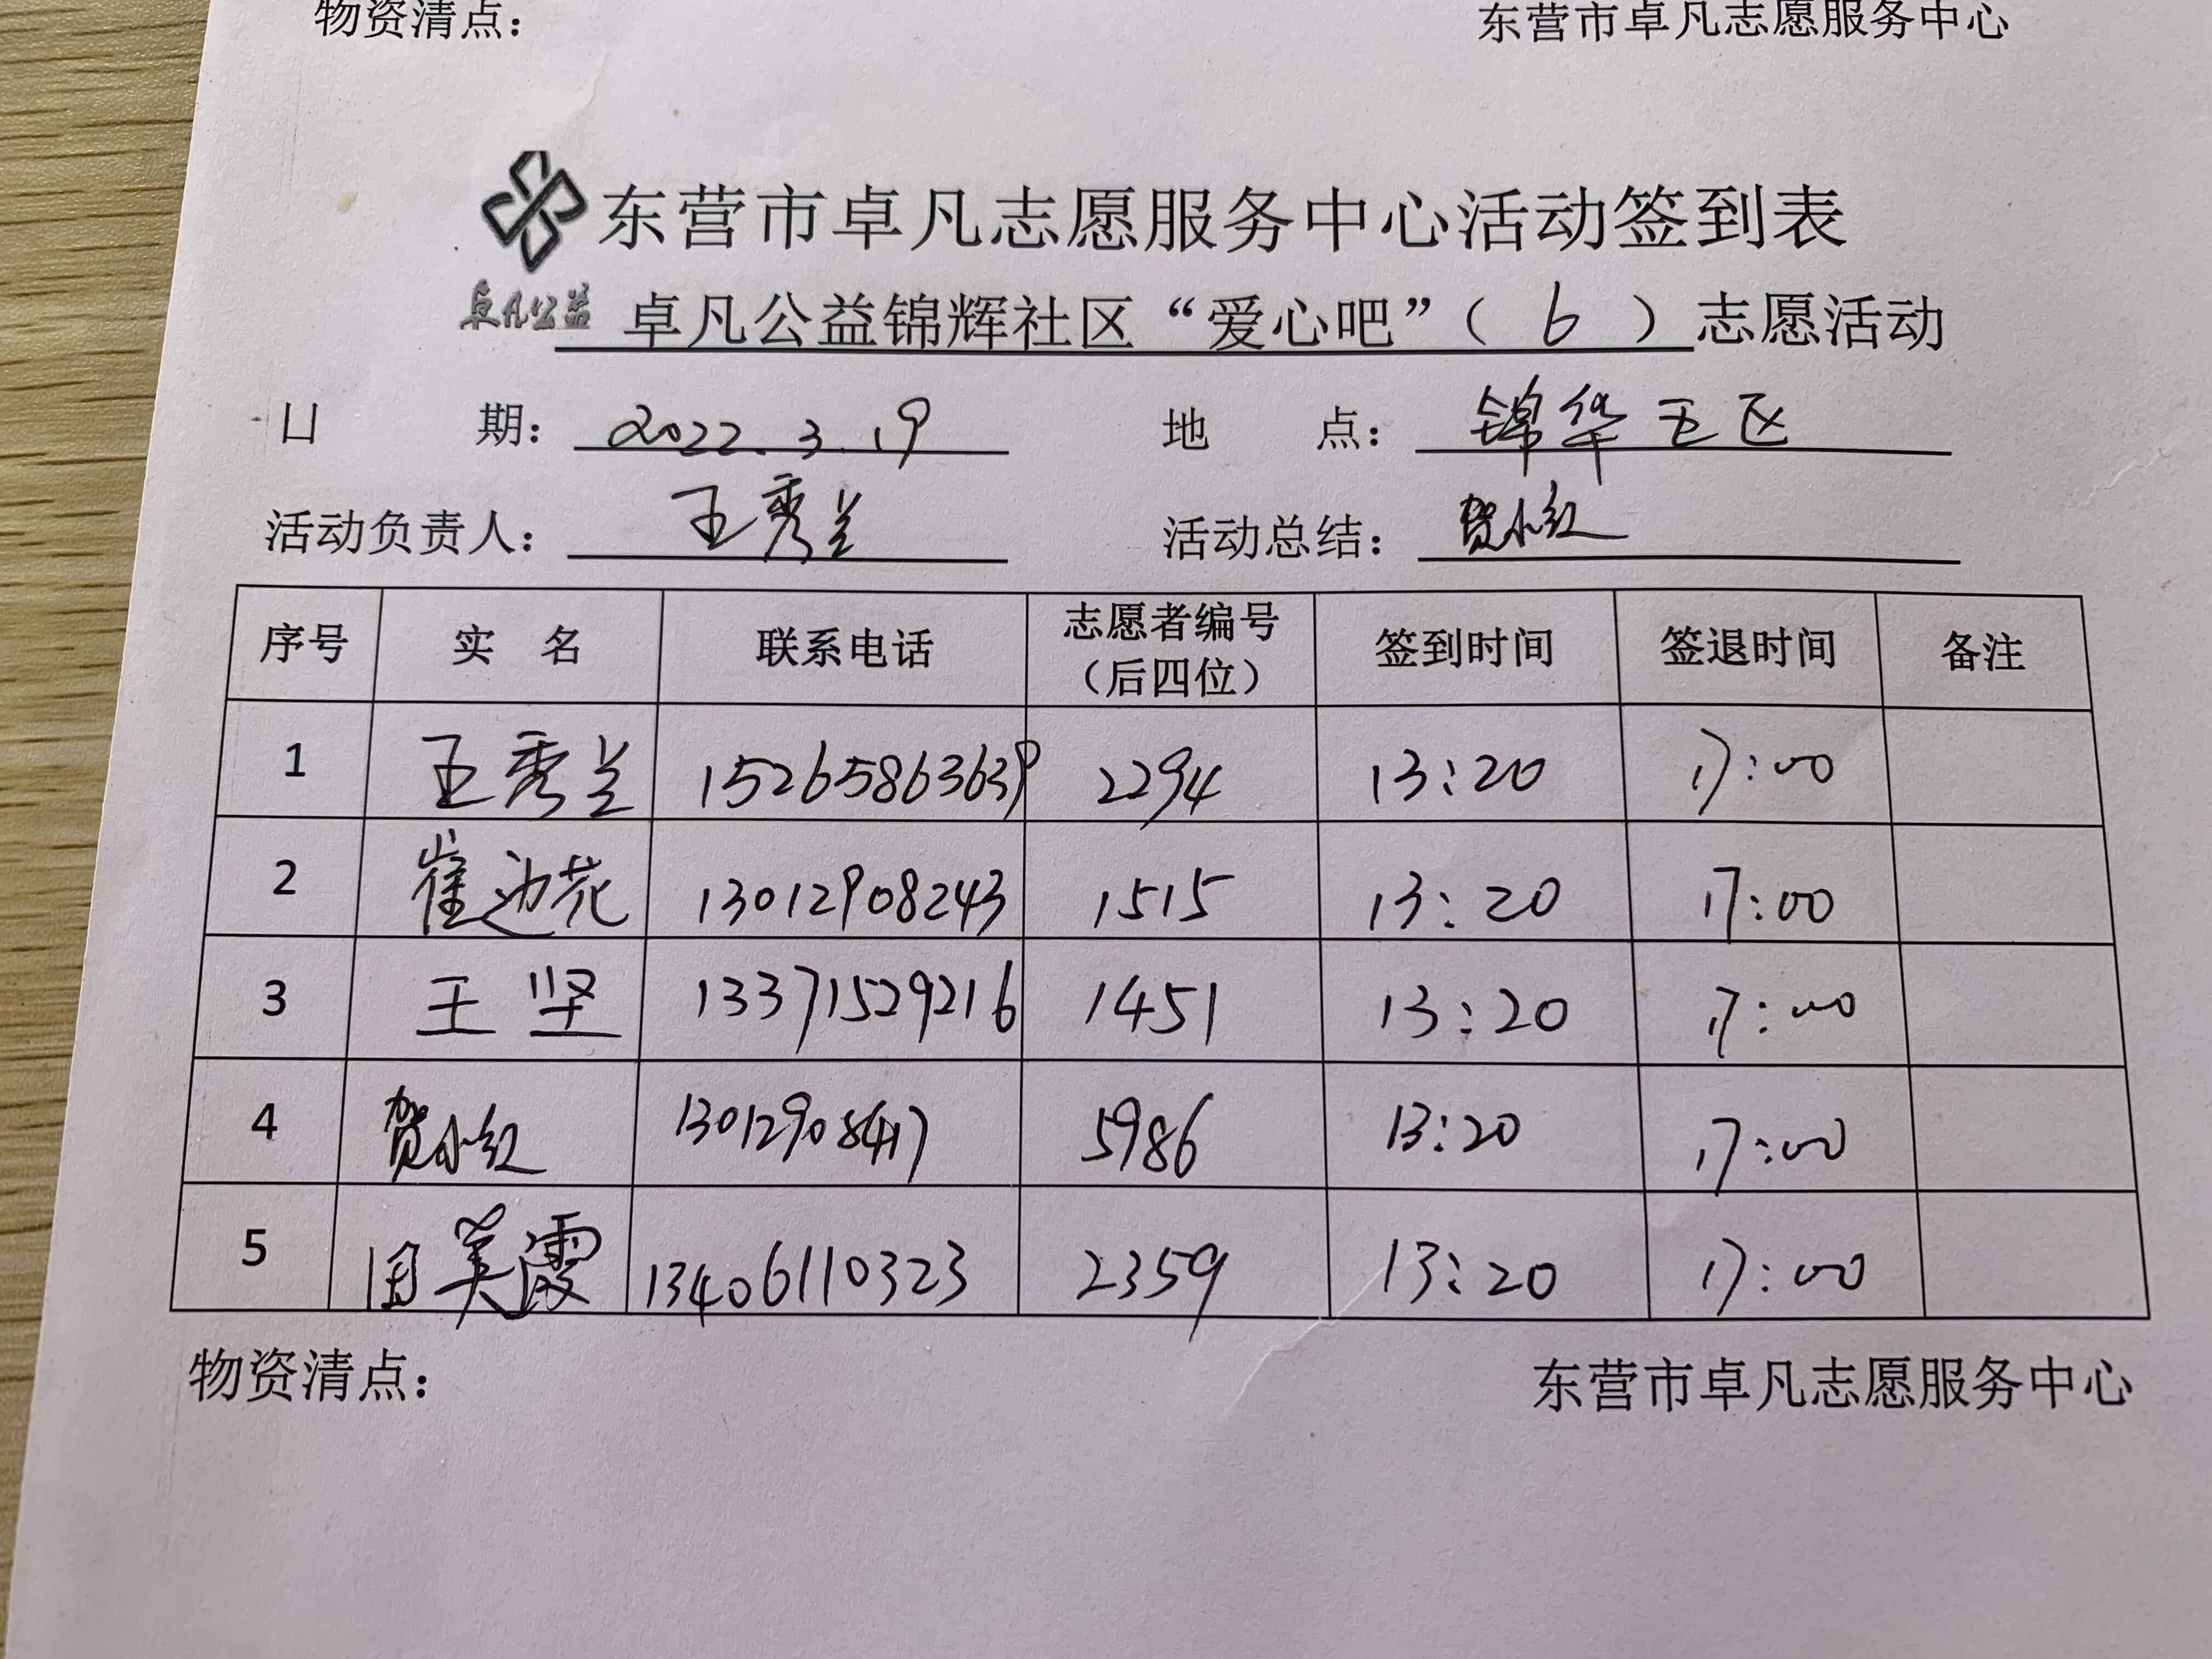 物资清点： 东营市卓凡志愿服务中心
东营市卓凡志愿服务中心活动签到表
卓凡公益 卓凡公益锦辉社区“爱心吧”（ 6 ）志愿活动
日 期： 2022.3.19 地 点： 锦华五区
活动负责人： 王秀兰 活动总结： 贺小红
序号 实 名 联系电话 志愿者编号（后四位） 签到时间 签退时间 备注
1 王秀兰 15265863639 2294 13:20 17:00
2 崔迎花 13012908243 1515 13:20 17:00
3 王坚 13371529216 1451 13:20 17:00
4 贺小红 13012908417 5986 13:20 17:00
5 美霞 13406110323 2359 13:20 17:00
物资清点： 东营市卓凡志愿服务中心